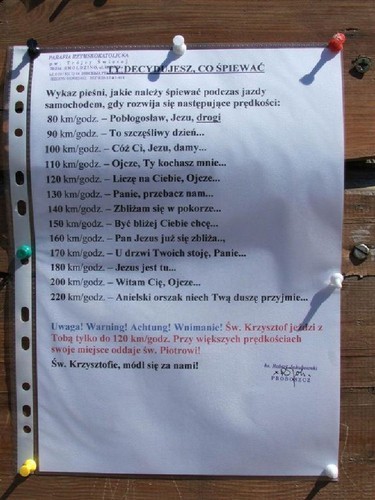 PARAFIA RZYMSKOKATOLICKA
p.w. Trójcy Świętej
TY DECYDUJESZ, CO ŚPIEWAĆ
Wykaz pieśni, jakie należy śpiewać podczas jazdy
samochodem, gdy rozwija się następujące prędkości:
80 km/godz. – Pobłogosław, Jezu, drogi
90 km/godz. – To szczęśliwy dzień...
100 km/godz. – Cóż Ci, Jezu, damy...
110 km/godz. – Ojcze, Ty kochasz mnie...
120 km/godz. – Liczę na Ciebie, Ojcze...
130 km/godz. – Panie, przebacz nam...
140 km/godz. – Zbliżam się w pokorze...
150 km/godz. – Być bliżej Ciebie chcę...
160 km/godz. – Pan Jezus już się zbliża...
170 km/godz. – U drzwi Twoich stoję, Panie...
180 km/godz. – Jezus jest tu...
200 km/godz. – Witam Cię, Ojcze...
220 km/godz. – Anielski orszak niech Twą duszę przyjmie...
Uwaga! Warning! Achtung! Wnimanie! Św. Krzysztof jeździ z
Tobą tylko do 120 km/godz. Przy większych prędkościach
swoje miejsce oddaje św. Piotrowi!
Św. Krzysztofie, módl się za nami!
PROBOSZCZ